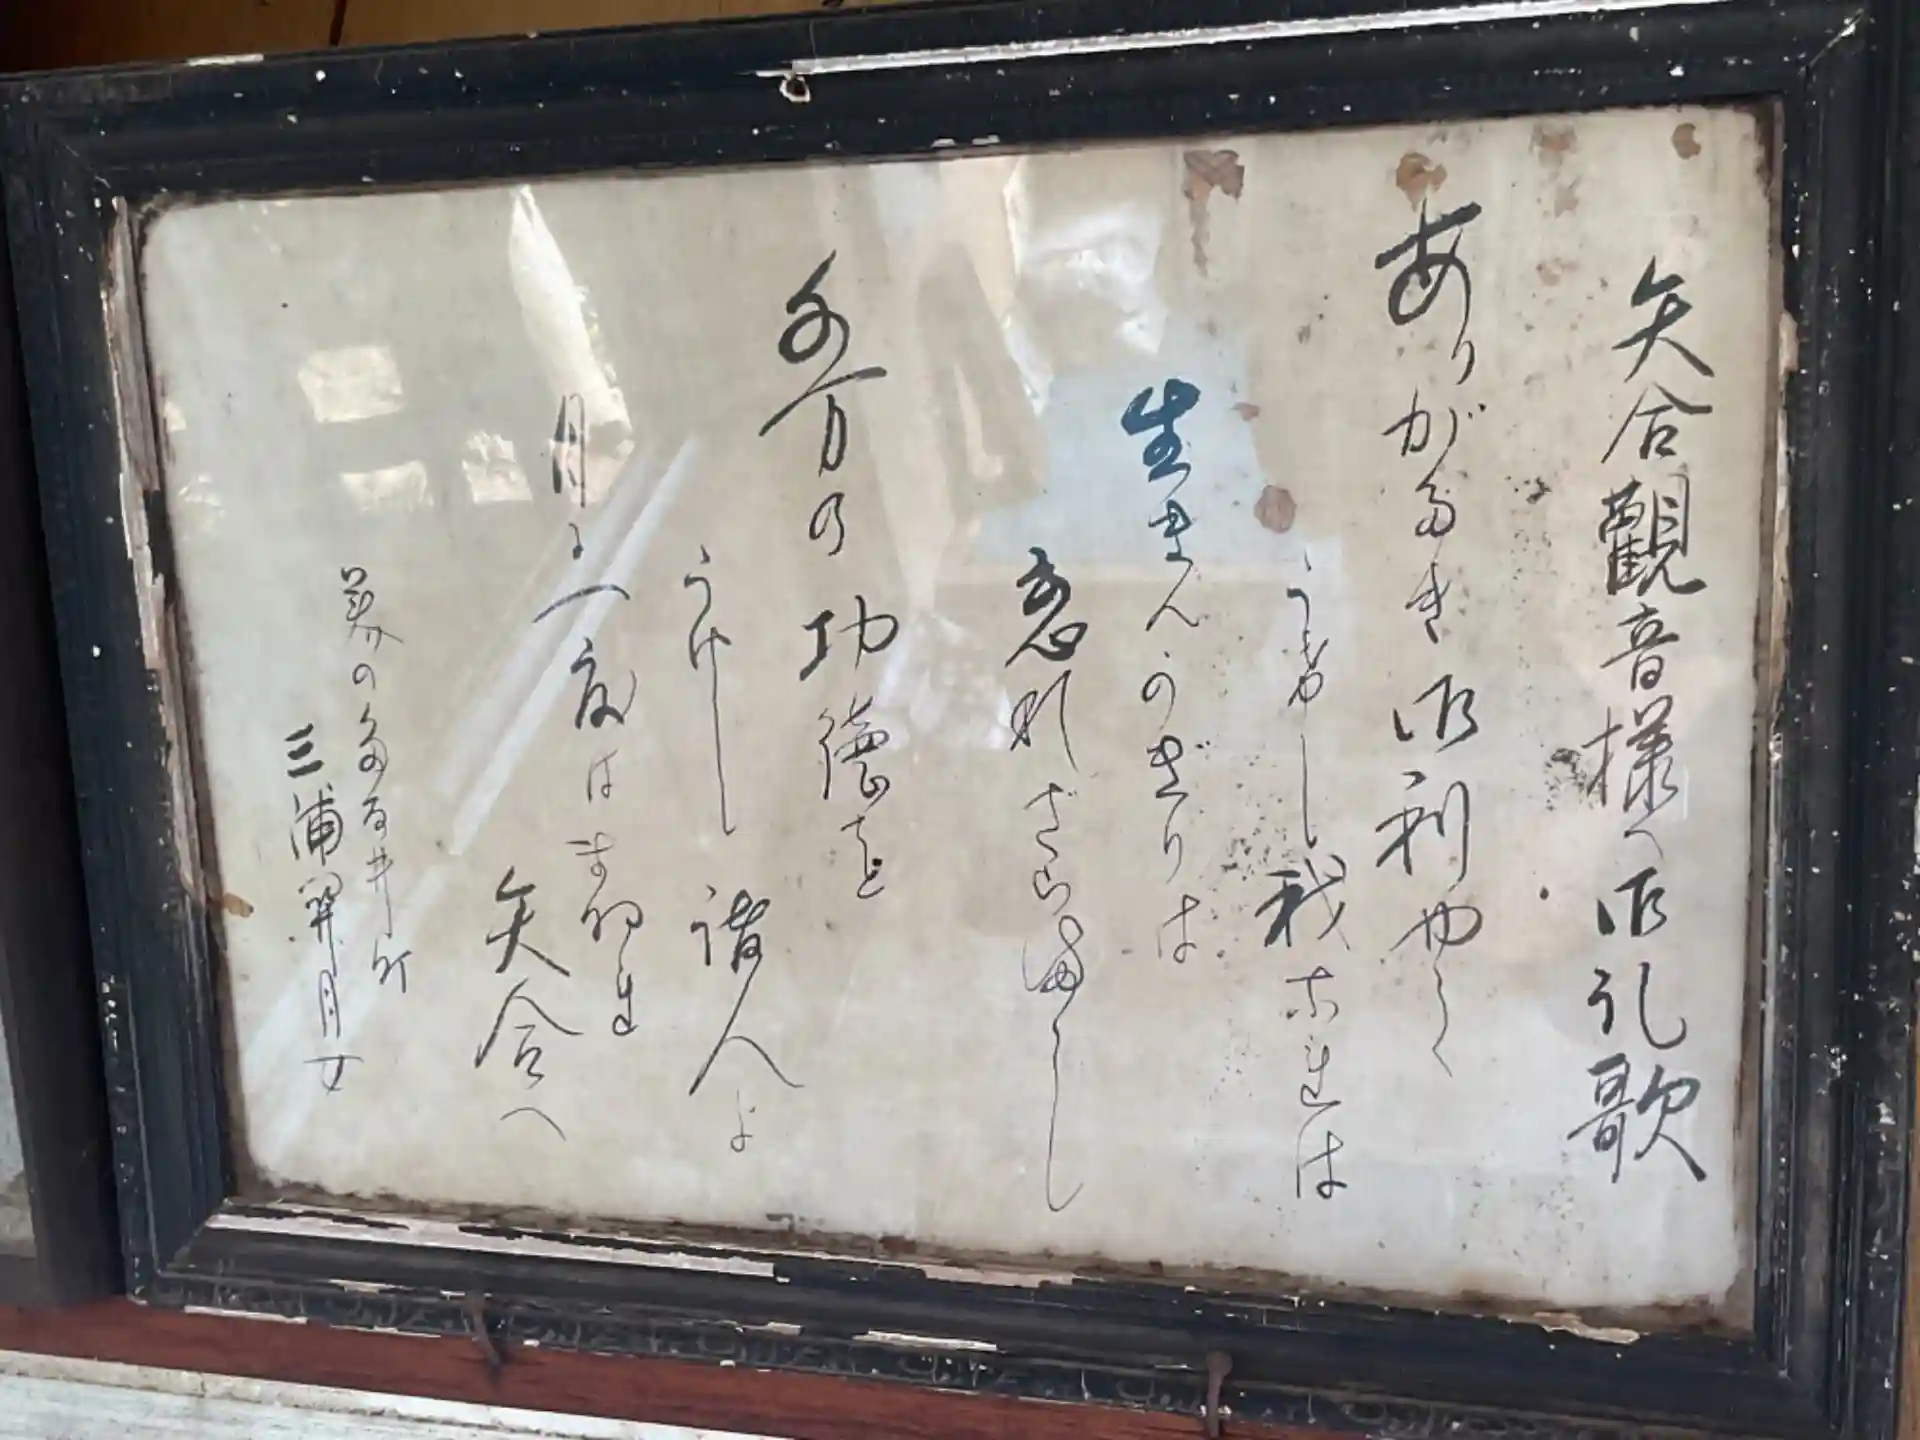 矢合觀音様へ御礼歌
ありがたき御利やく
うけし我等は
生きんかぎりは
忘れざらまし
多万の功德を
うけし諸人よ
月に一度は
矢合へ
美の
三浦 月女